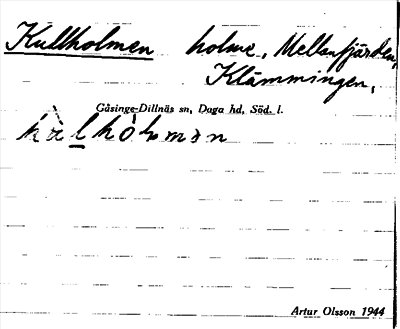 Kullholmen holme, Mellanfjärden,
Klämmingen,
Gåsinge-Dillnäs sn, Daga hd, Söd. l.
Artur Olsson 1944